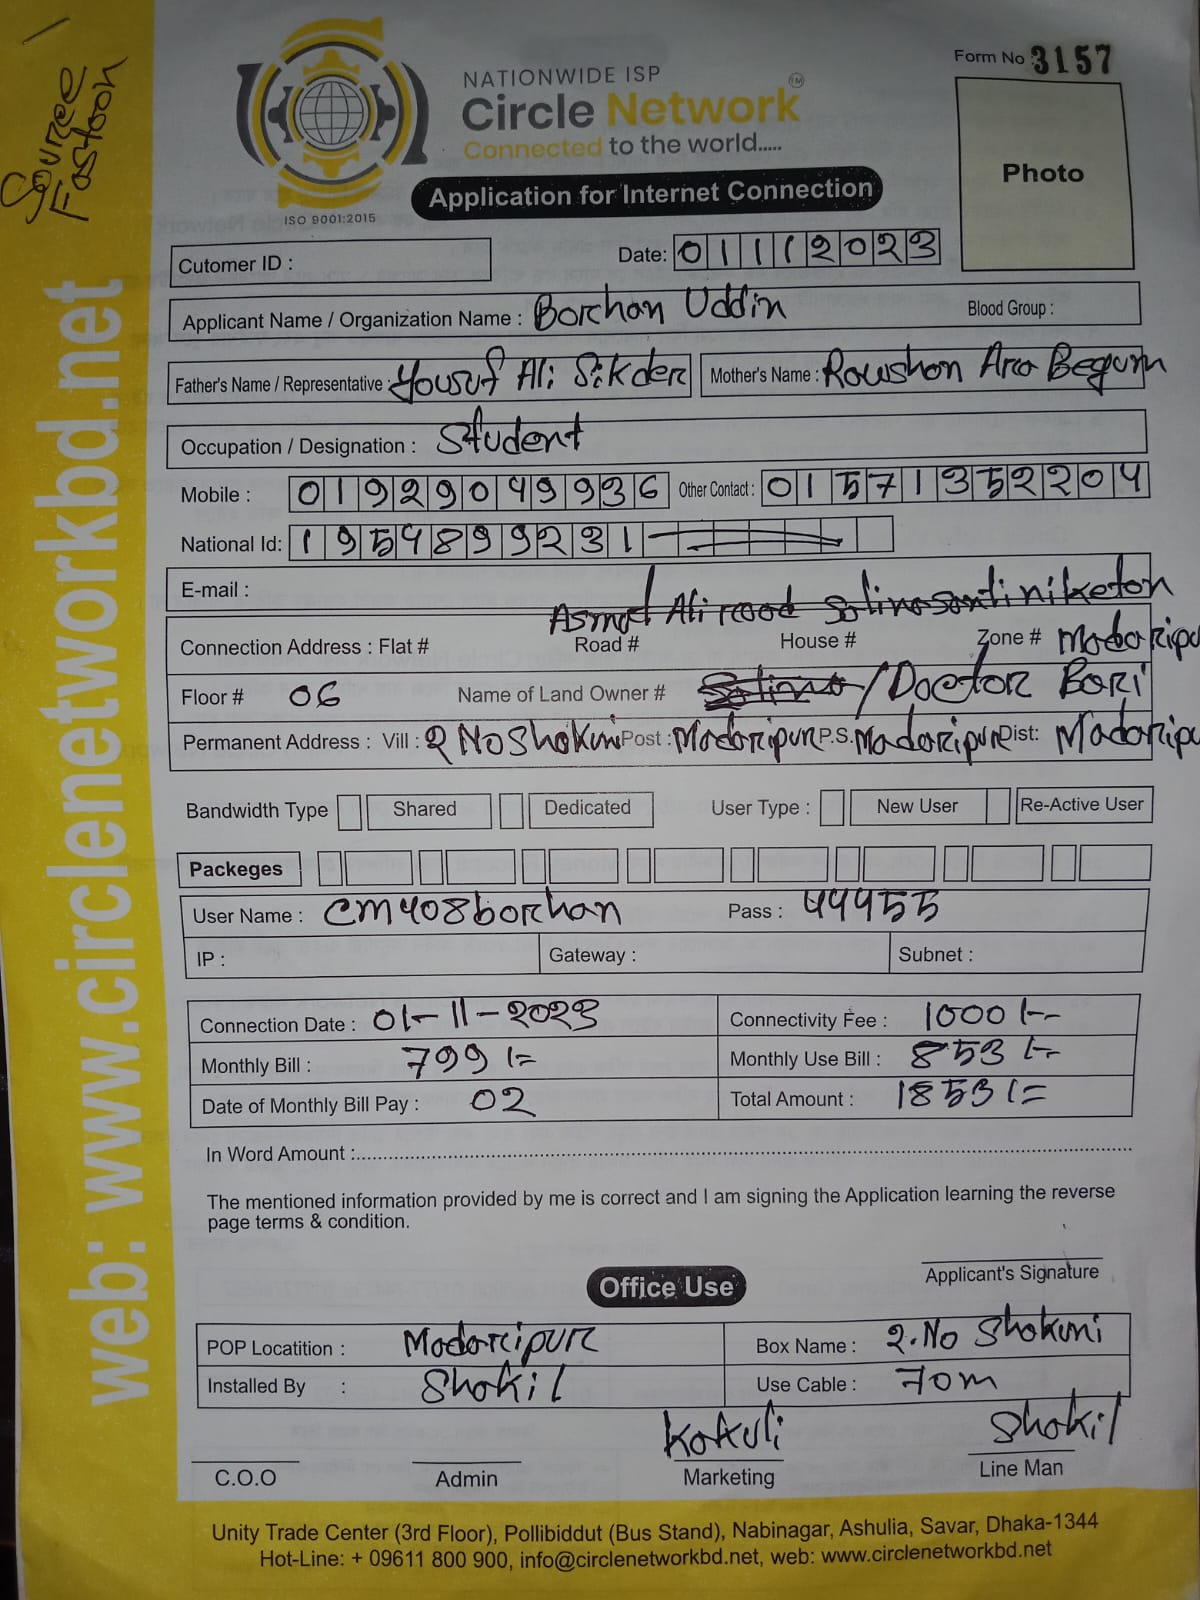 Source
Fastoon
web: www.circlenetworkbd.net
NATIONWIDE ISP
Circle Network TM
Connected to the world.....
ISO 9001:2015
Form No 3157
Photo
Application for Internet Connection
Cutomer ID :
Date: 01112023
Applicant Name / Organization Name : Borhan Uddin
Blood Group :
Father's Name / Representative : Yousuf Ali Sikder
Mother's Name : Rowshon Ara Begum
Occupation / Designation : Student
Mobile : 01929049936
Other Contact : 01571352204
National Id: 1954899231
E-mail :
Asmot Ali rood Salinasantiniketon
Connection Address : Flat # Road # House # Zone # Madaripu
Floor # 06 Name of Land Owner # Salina / Doctor Bari
Permanent Address : Vill : 2 No Shokuni Post : Madaripur P.S. Madaripur Dist: Madaripu
Bandwidth Type Shared Dedicated User Type : New User Re-Active User
Packeges
User Name : cm408borhan Pass : 44955
IP : Gateway : Subnet :
Connection Date : 01-11-2023 Connectivity Fee : 1000/-
Monthly Bill : 799/= Monthly Use Bill : 853/-
Date of Monthly Bill Pay : 02 Total Amount : 1853/=
In Word Amount :
The mentioned information provided by me is correct and I am signing the Application learning the reverse
page terms & condition.
Applicant's Signature
Office Use
POP Locatition : Madaripur Box Name : 2.No Shokuni
Installed By : Shokil Use Cable : 70m
Kakuli Shokil
C.O.O Admin Marketing Line Man
Unity Trade Center (3rd Floor), Pollibiddut (Bus Stand), Nabinagar, Ashulia, Savar, Dhaka-1344
Hot-Line: + 09611 800 900, info@circlenetworkbd.net, web: www.circlenetworkbd.net